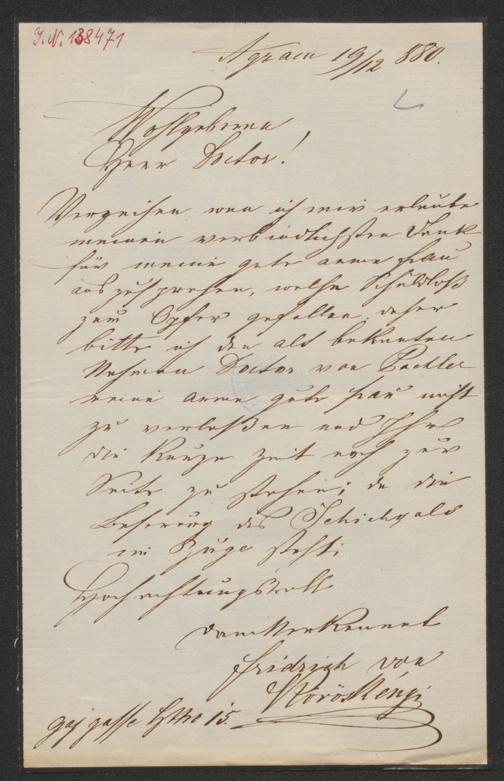 J.N. 138471
Agram 19/12 880.
Wohlgeborner
Herr Doctor!
Verzeihen wen ich mir erlaube
meinen verbindlichsten Dank
für meine gute arme Frau
auszusprehen, welche Schuldloß
zum Opfer gefallen, daher
bitte ich den alt bekanten
Doctor von
meine arme gute Frau nicht
zu verlaßen und Ihr
die kurze Zeit noch zur
Seite zu stehen; da die
Beserung des Schicksals
im Zuge steht;
Hochachtungsvoll
Fridrich von
Vöröskényi
gaj gasse 15.